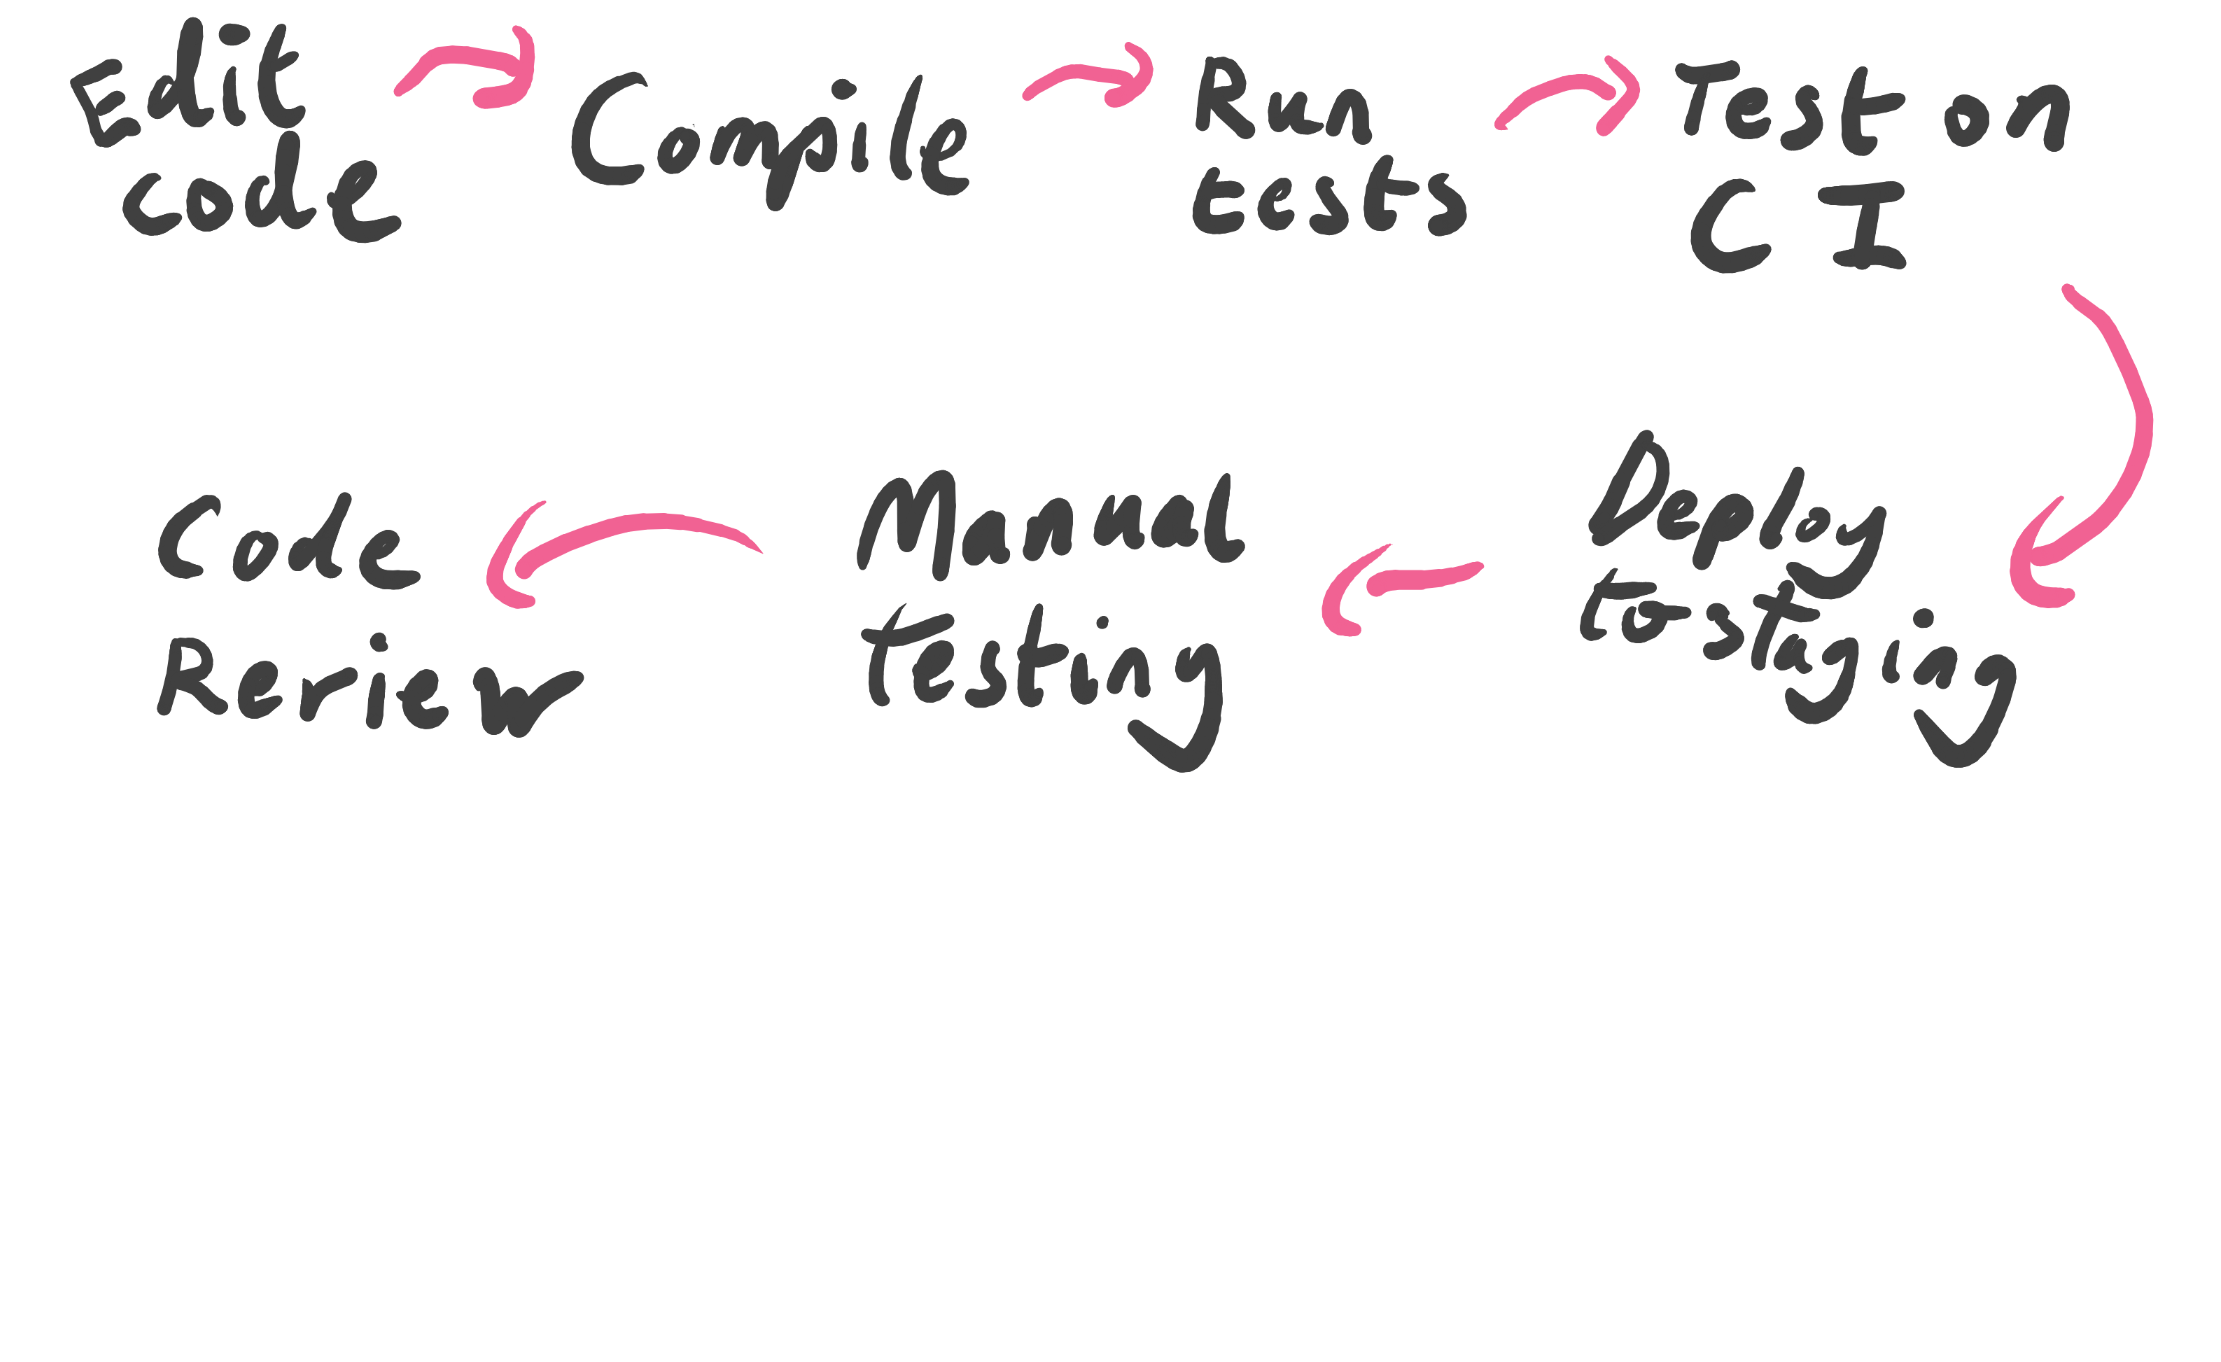 Edit
code
Compile
Run
tests
Test on
CI
Deploy
to staging
Manual
testing
Code
Review